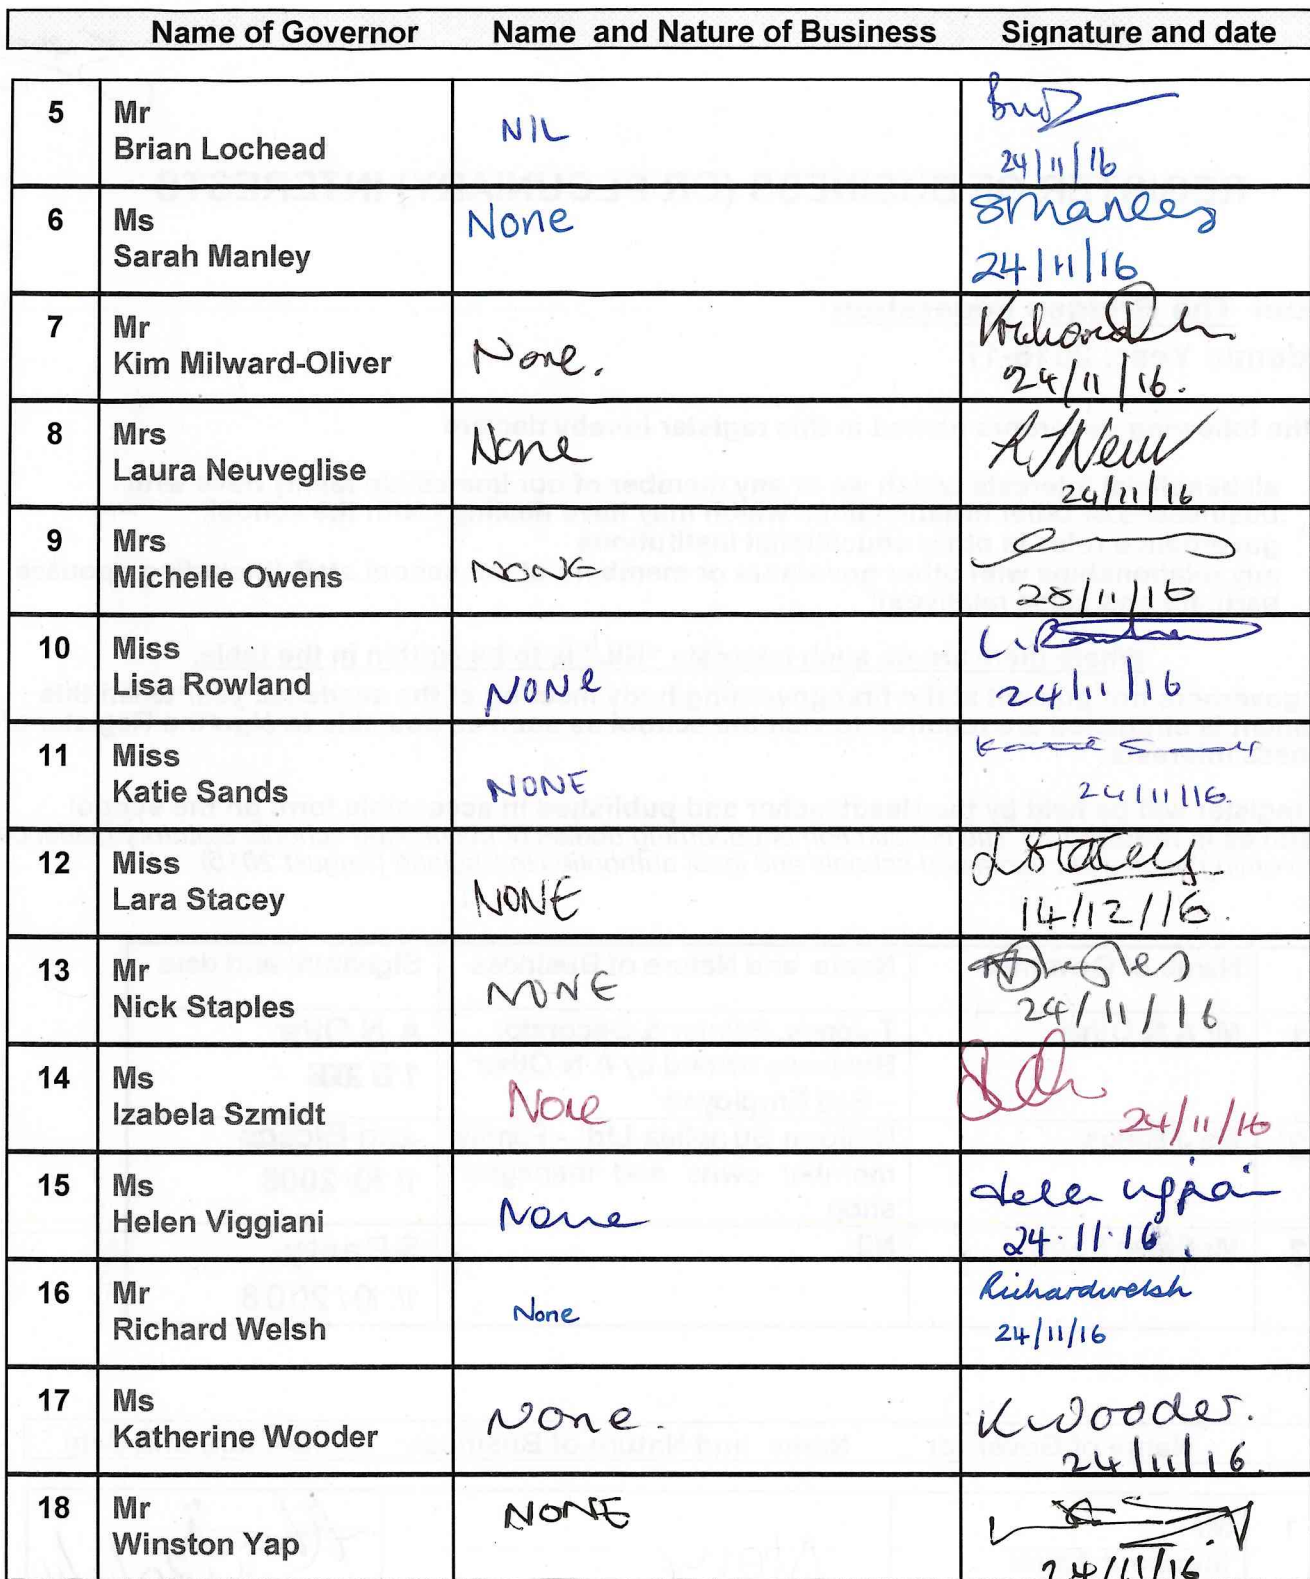 Name of Governor Name and Nature of Business Signature and date
5 Mr
Brian Lochead
NIL
24/11/16
6 Ms
Sarah Manley
None
SManley
24/11/16
7 Mr
Kim Milward-Oliver
None.
24/11/16.
8 Mrs
Laura Neuveglise
None
24/11/16
9 Mrs
Michelle Owens
NONE
28/11/16
10 Miss
Lisa Rowland
NONE
24/11/16
11 Miss
Katie Sands
NONE
Katie Sands
24/11/16
12 Miss
Lara Stacey
NONE
L Stacey
14/12/16.
13 Mr
Nick Staples
NONE
24/11/16
14 Ms
Izabela Szmidt
None
24/11/16
15 Ms
Helen Viggiani
None
Helen Viggiani
24.11.16
16 Mr
Richard Welsh
None
Richard Welsh
24/11/16
17 Ms
Katherine Wooder
None.
K Wooder.
24/11/16.
18 Mr
Winston Yap
NONE
24/11/16